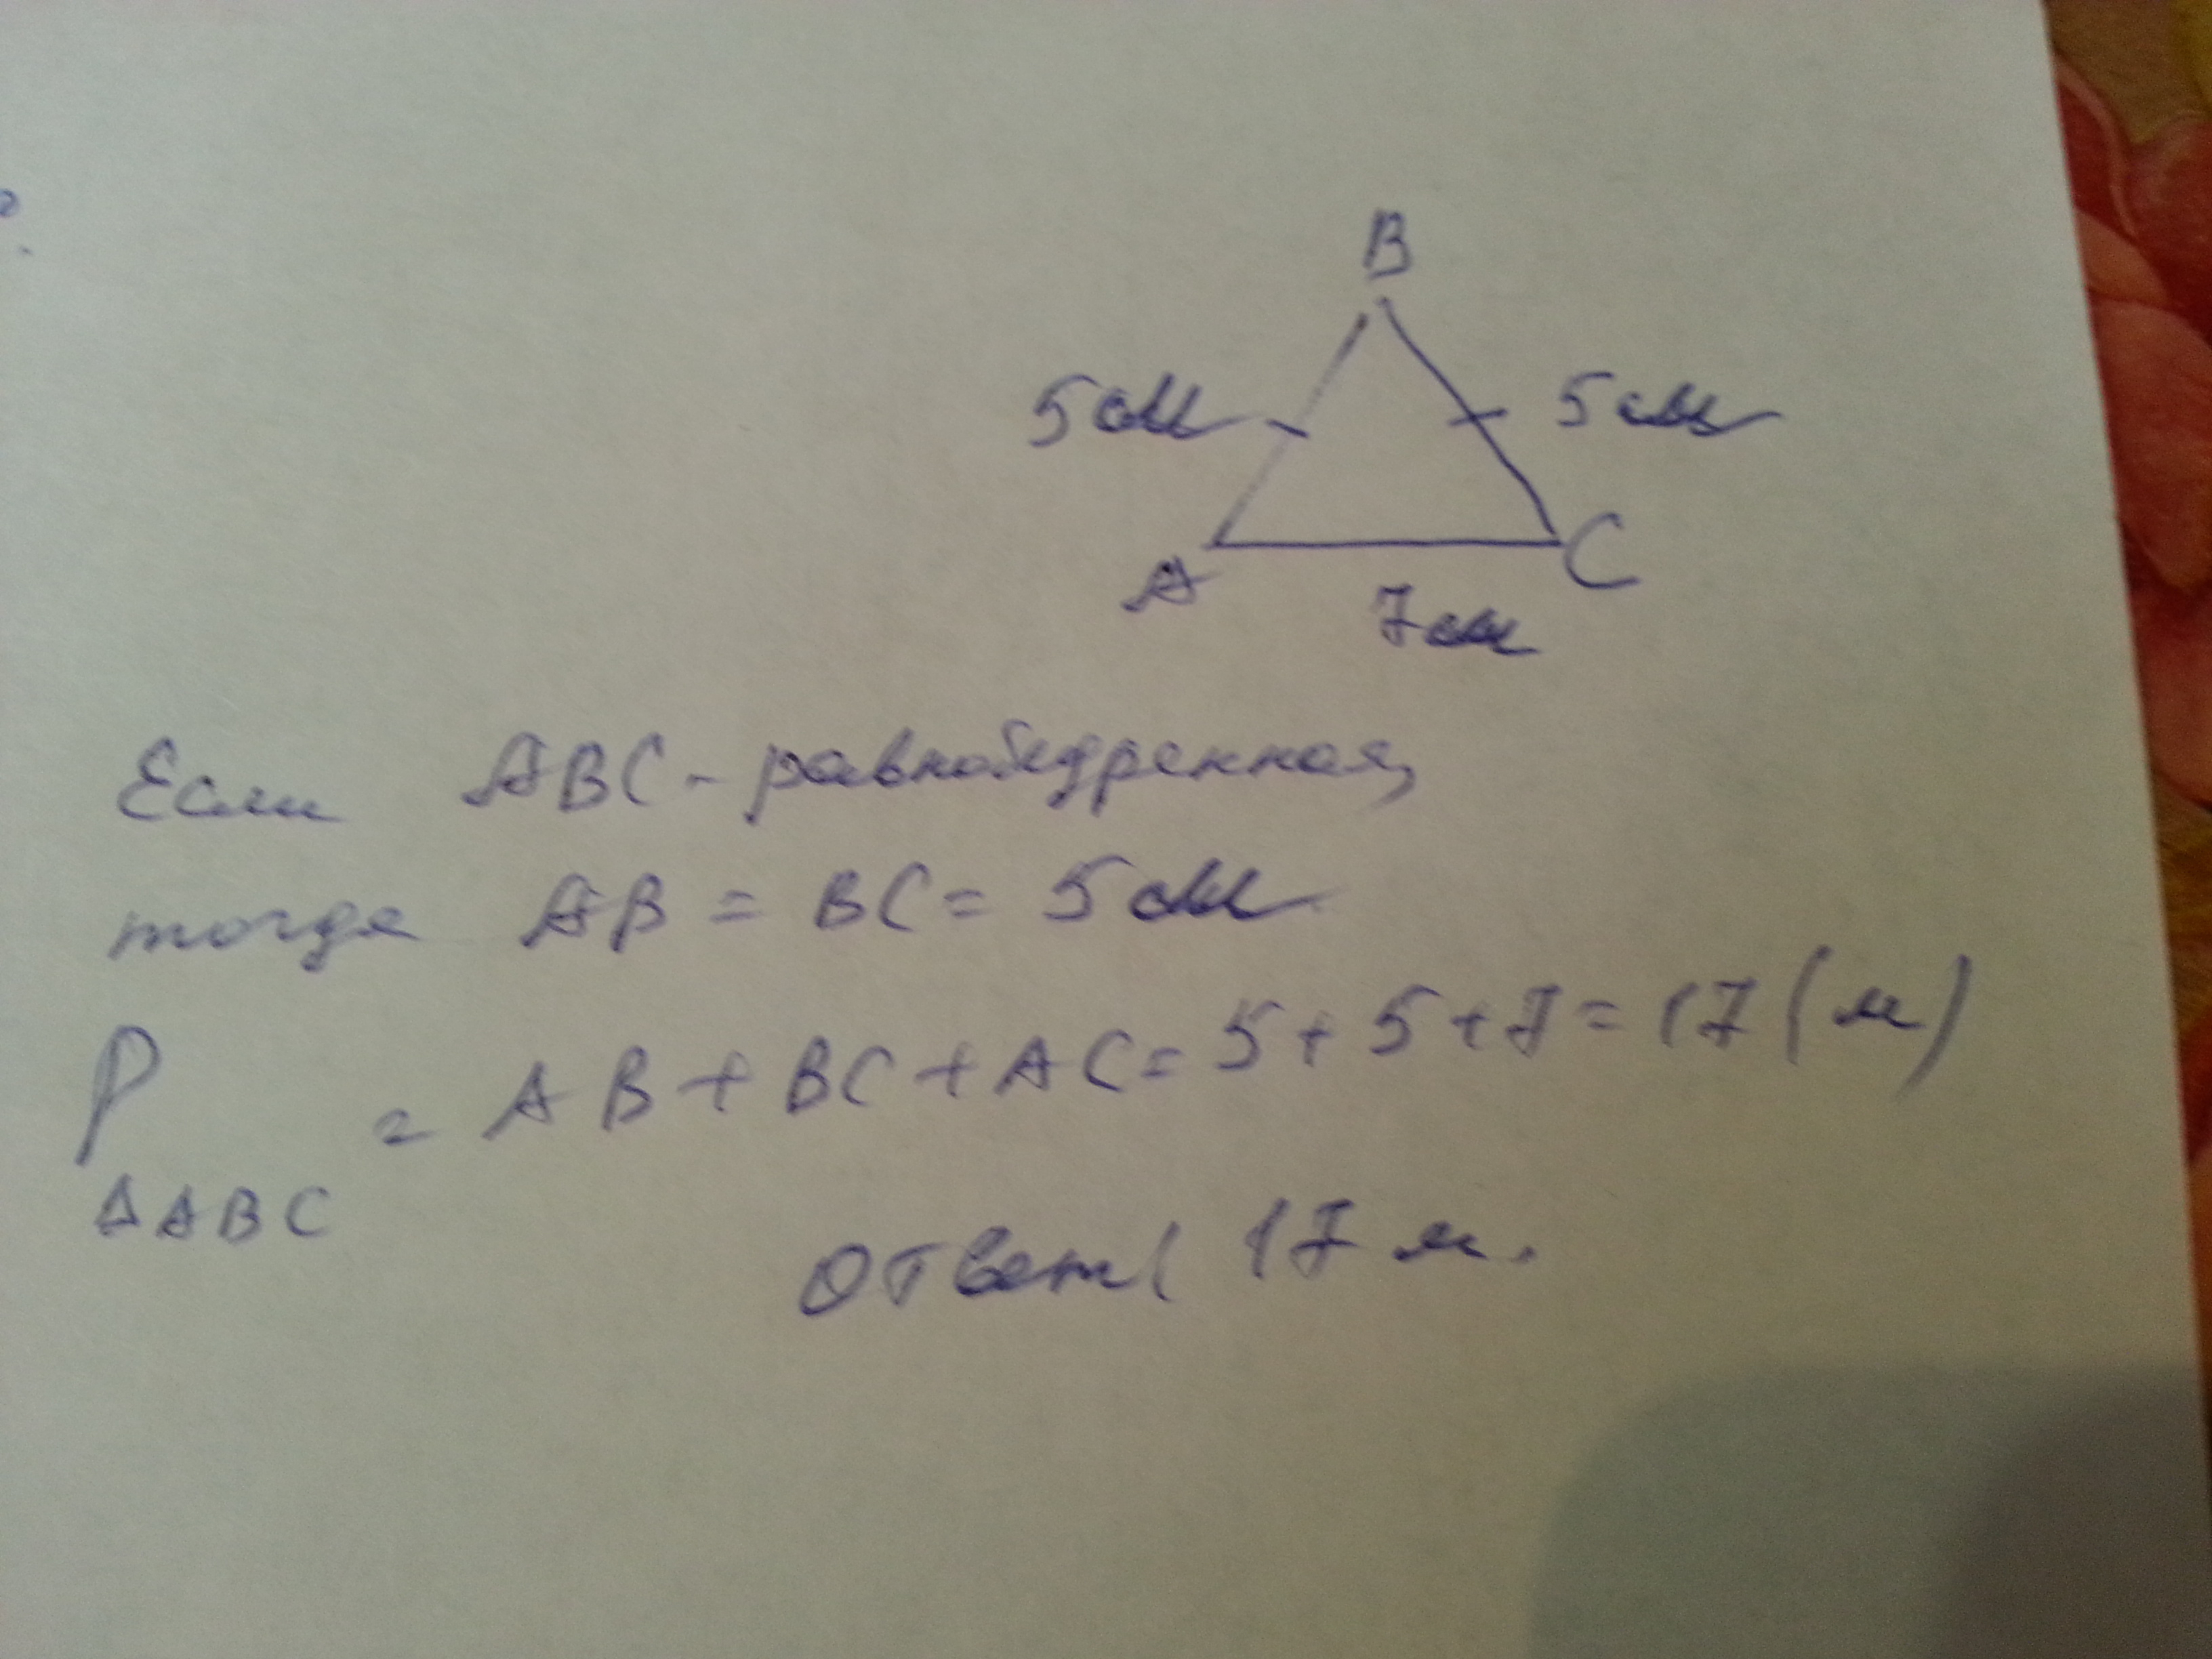 B
5см 5см
A C
7см
Если ABC - равнобедренная,
тогда AB = BC = 5см
P = AB + BC + AC = 5 + 5 + 7 = 17 (м)
ΔABC
Ответ: 17 м.